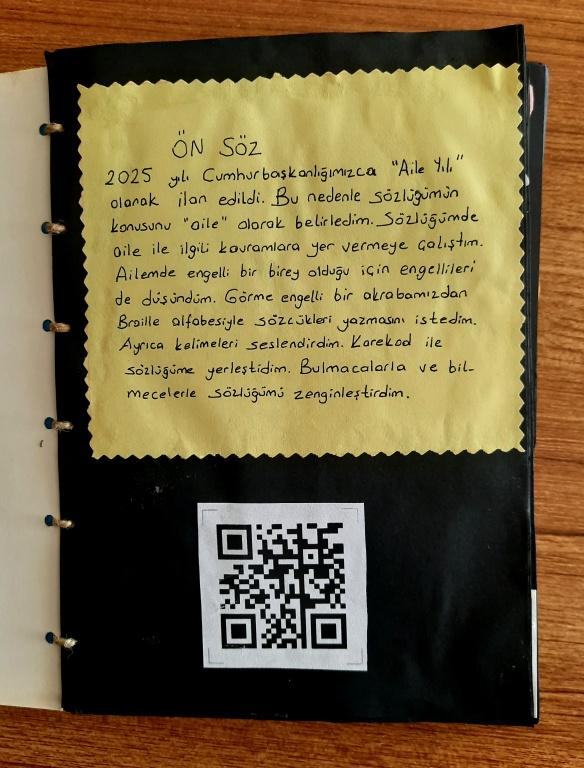 ÖN SÖZ
2025 yılı Cumhurbaşkanlığımızca "Aile Yılı"
olarak ilan edildi. Bu nedenle sözlüğümün
konusunu "aile" olarak belirledim. Sözlüğümde
aile ile ilgili kavramlara yer vermeye çalıştım.
Ailemde engelli bir birey olduğu için engellileri
de düşündüm. Görme engelli bir akrabamızdan
Braille alfabesiyle sözcükleri yazmasını istedim.
Ayrıca kelimeleri seslendirdim. Karekod ile
sözlüğüme yerleştidim. Bulmacalarla ve bil-
mecelerle sözlüğümü zenginleştirdim.